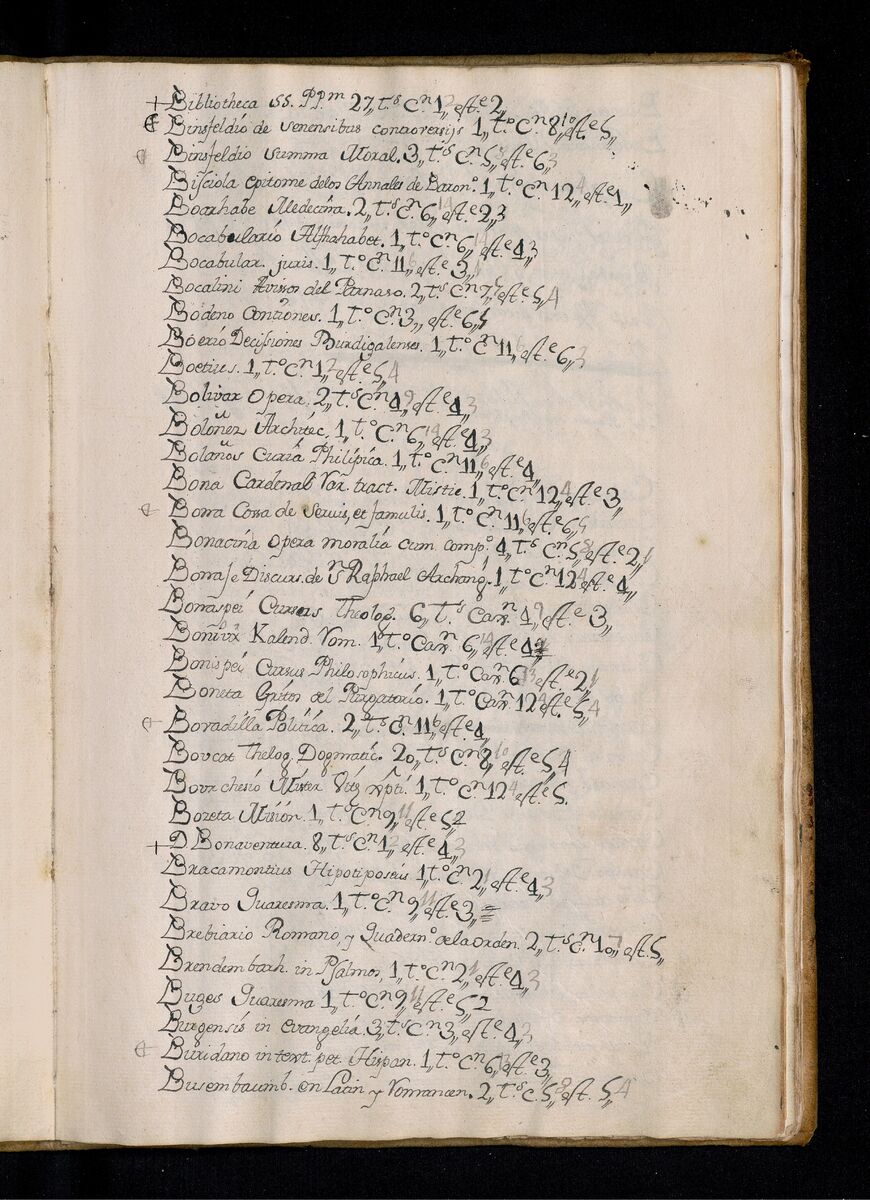 + Bibliotheca SS. PP.m 27,, t.s C.n 1,, est.e 2,,
Binsfeldio de venensibus controversijs 1,, t.o C.n 8,, 10 est.e 5,,
Binsfeldio summa Moral. 3,, t.s C.n 5,, est.e 6,, 3
Bisciola epitome delos Annales de Baron.o 1,, t.o C.n 12,, 4 est.e 1,,
Boarhabe Medecina. 2,, t.s C.n 6,, 14 est.e 2,, 3
Bocabulario Alphahabet. 1,, t.o C.n 6,, 14 est.e 4,, 3
Bocabular. juris. 1,, t.o C.n 11,, 6 est.e 3,,
Bocalini Avisos del Parnaso. 2,, t.s C.n 7,, est.e 5,, 4
Bodeno Conciones. 1,, t.o C.n 3,, est.e 6,,
Boerio Decissiones Burdigalenses. 1,, t.o C.n 11,, 6 est.e 6,, 3
Boetius. 1,, t.o C.n 1,, 2 est.e 5,, 4
Bolivar Opera. 2,, t.s C.n 4,, 9 est.e 4,, 3
Boloñez Architéc. 1,, t.o C.n 6,, 14 est.e 4,, 3
Bolaños Curia Philipica. 1,, t.o C.n 11,, 6 est.e 4,,
Bona Cardenal Var. tract. Mistic. 1,, t.o C.n 12,, 4 est.e 3,,
Bona Cossa de Servis, et famulis. 1,, t.o C.n 11,, 6 est.e 6,,
Bonacina opera moralia cum comp.o 4,, t.s C.n 5,, 8 est.e 2,, 1
Bonaſe Discurs. de S.n Raphael Archang. 1,, t.o C.n 12 4 est.e 4,,
Bonaspei Cursus Theolog. 6,, t.s Cax.n 4,, 9 est.e 3,,
Kalend Rom. 1,, t.o Cax.n 6,, 14 est.e 4,,
Bonispei Cursus Philosophicus. 1,, t.o Cax.n 6 13 est.e 2,, 1
Boneta Gritos del Purgatorio. 1,, t.o Cax.n 12 4 est.e 5,, 4
Bovadilla Politica. 2,, t.s C.n 11,, 6 est.e 4,,
Boucat Thelog. Dogmatic. 20,, t.s C.n 8,, 10 est.e 5,, 4
Bourchesio Mister. Vitę xp̃ti. 1,, t.o C.n 12 4 est.e 5.
Bozeta Misión. 1,, t.o C.n 9,, 11 est.e 5,, 2
+ D Bonaventura. 8,, t.s C.n 1,, 2 est.e 4,, 3
Bracamontius Hipotiposeus. 1,, t.o C.n 2,, 1 est.e 4,, 3
Bravo Quaresma. 1,, t.o C.n 9,, 11 est.e 3,, =
Brebiario Romano, y Quadern.o dela orden. 2,, t.s C.n 10,, 7 est. 5,,
Brendembach. in Psalmos, 1,, t.o C.n 2,, 1 est.e 4,, 3
Buges Quaresma 1,, t.o C.n 9,, 11 est.e 5,, 2
Burgensis in evangelia. 3,, t.s C.n 3,, est.e 4,, 3
Buridano in text. pet. Hispan. 1,, t.o C.n 6,, 13 est.e 3,,
Busembaumb. en Latin y Romancen. 2,, t.s C. 5,, 8 est. 5,, 4